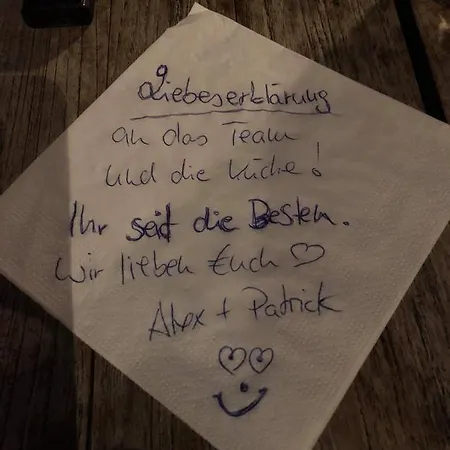 Liebeserklärung
an das Team
und die Küche!
Ihr seid die Besten.
Wir lieben Euch ♡
Alex + Patrick